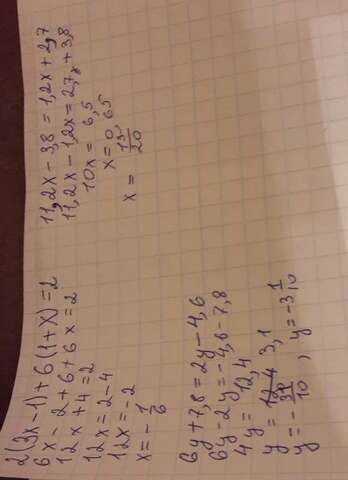 2(3x-1)+6(1+x)=2
6x-2+6+6x=2
12x+4=2
12x=2-4
12x=-2
x=-1/6
6y+7,8=2y-4,6
6y-2y=-4,6-7,8
4y=12,4
y= 3,1
y=-31/10, y=-3 1/10
11,2x-3,8=1,2x+2,7
11,2x-1,2x=2,7+3,8
10x=6,5
x=0,65
x=13/20